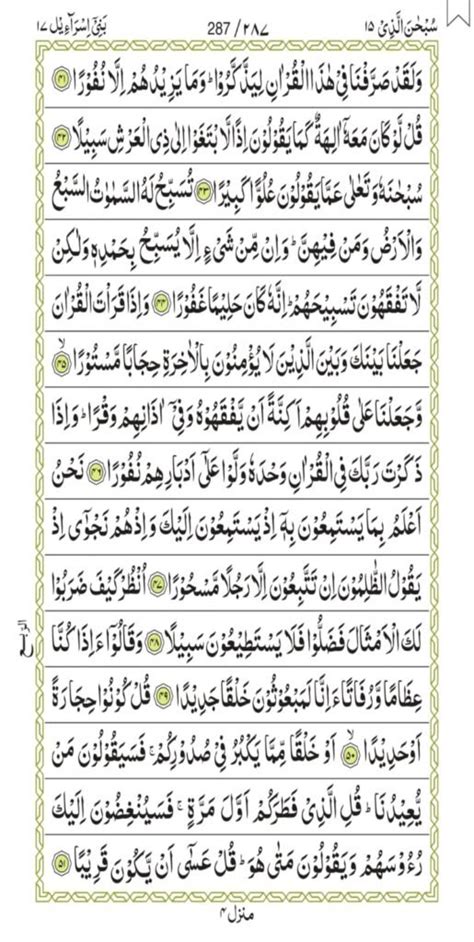 سُبْحٰنَ الَّذِیْۤ ۱۵
287/۲۸۷
بَنِیْۤ اِسْرَآءِیْل ۱۷
وَلَقَدْ صَرَّفْنَا فِیْ هٰذَا الْقُرْاٰنِ لِیَذَّكَّرُوْا ؕ وَمَا یَزِیْدُهُمْ اِلَّا نُفُوْرًا ۴۱
قُلْ لَّوْ كَانَ مَعَهٗۤ اٰلِهَةٌ كَمَا یَقُوْلُوْنَ اِذًا لَّابْتَغَوْا اِلٰی ذِی الْعَرْشِ سَبِیْلًا ۴۲
سُبْحٰنَهٗ وَتَعٰلٰی عَمَّا یَقُوْلُوْنَ عُلُوًّا كَبِیْرًا ۴۳ تُسَبِّحُ لَهُ السَّمٰوٰتُ السَّبْعُ
وَالْاَرْضُ وَمَنْ فِیْهِنَّ ؕ وَاِنْ مِّنْ شَیْءٍ اِلَّا یُسَبِّحُ بِحَمْدِهٖ وَلٰكِنْ
لَّا تَفْقَهُوْنَ تَسْبِیْحَهُمْ ؕ اِنَّهٗ كَانَ حَلِیْمًا غَفُوْرًا ۴۴ وَاِذَا قَرَاْتَ الْقُرْاٰنَ
جَعَلْنَا بَیْنَكَ وَبَیْنَ الَّذِیْنَ لَا یُؤْمِنُوْنَ بِالْاٰخِرَةِ حِجَابًا مَّسْتُوْرًا ۙ ۴۵
وَّجَعَلْنَا عَلٰی قُلُوْبِهِمْ اَكِنَّةً اَنْ یَّفْقَهُوْهُ وَفِیْۤ اٰذَانِهِمْ وَقْرًا ؕ وَاِذَا
ذَكَرْتَ رَبَّكَ فِی الْقُرْاٰنِ وَحْدَهٗ وَلَّوْا عَلٰۤی اَدْبَارِهِمْ نُفُوْرًا ۴۶ نَحْنُ
اَعْلَمُ بِمَا یَسْتَمِعُوْنَ بِهٖۤ اِذْ یَسْتَمِعُوْنَ اِلَیْكَ وَاِذْ هُمْ نَجْوٰۤی اِذْ
یَقُوْلُ الظّٰلِمُوْنَ اِنْ تَتَّبِعُوْنَ اِلَّا رَجُلًا مَّسْحُوْرًا ۴۷ اُنْظُرْ كَیْفَ ضَرَبُوْا
لَكَ الْاَمْثَالَ فَضَلُّوْا فَلَا یَسْتَطِیْعُوْنَ سَبِیْلًا ۴۸ وَقَالُوْۤا ءَاِذَا كُنَّا
عِظَامًا وَّرُفَاتًا ءَاِنَّا لَمَبْعُوْثُوْنَ خَلْقًا جَدِیْدًا ۴۹ قُلْ كُوْنُوْا حِجَارَةً
اَوْ حَدِیْدًا ۙ ۵۰ اَوْ خَلْقًا مِّمَّا یَكْبُرُ فِیْ صُدُوْرِكُمْ ۚ فَسَیَقُوْلُوْنَ مَنْ
یُّعِیْدُنَا ؕ قُلِ الَّذِیْ فَطَرَكُمْ اَوَّلَ مَرَّةٍ ۚ فَسَیُنْغِضُوْنَ اِلَیْكَ
رُءُوْسَهُمْ وَیَقُوْلُوْنَ مَتٰی هُوَ ؕ قُلْ عَسٰۤی اَنْ یَّكُوْنَ قَرِیْبًا ۵۱
الربع
منزل ۴